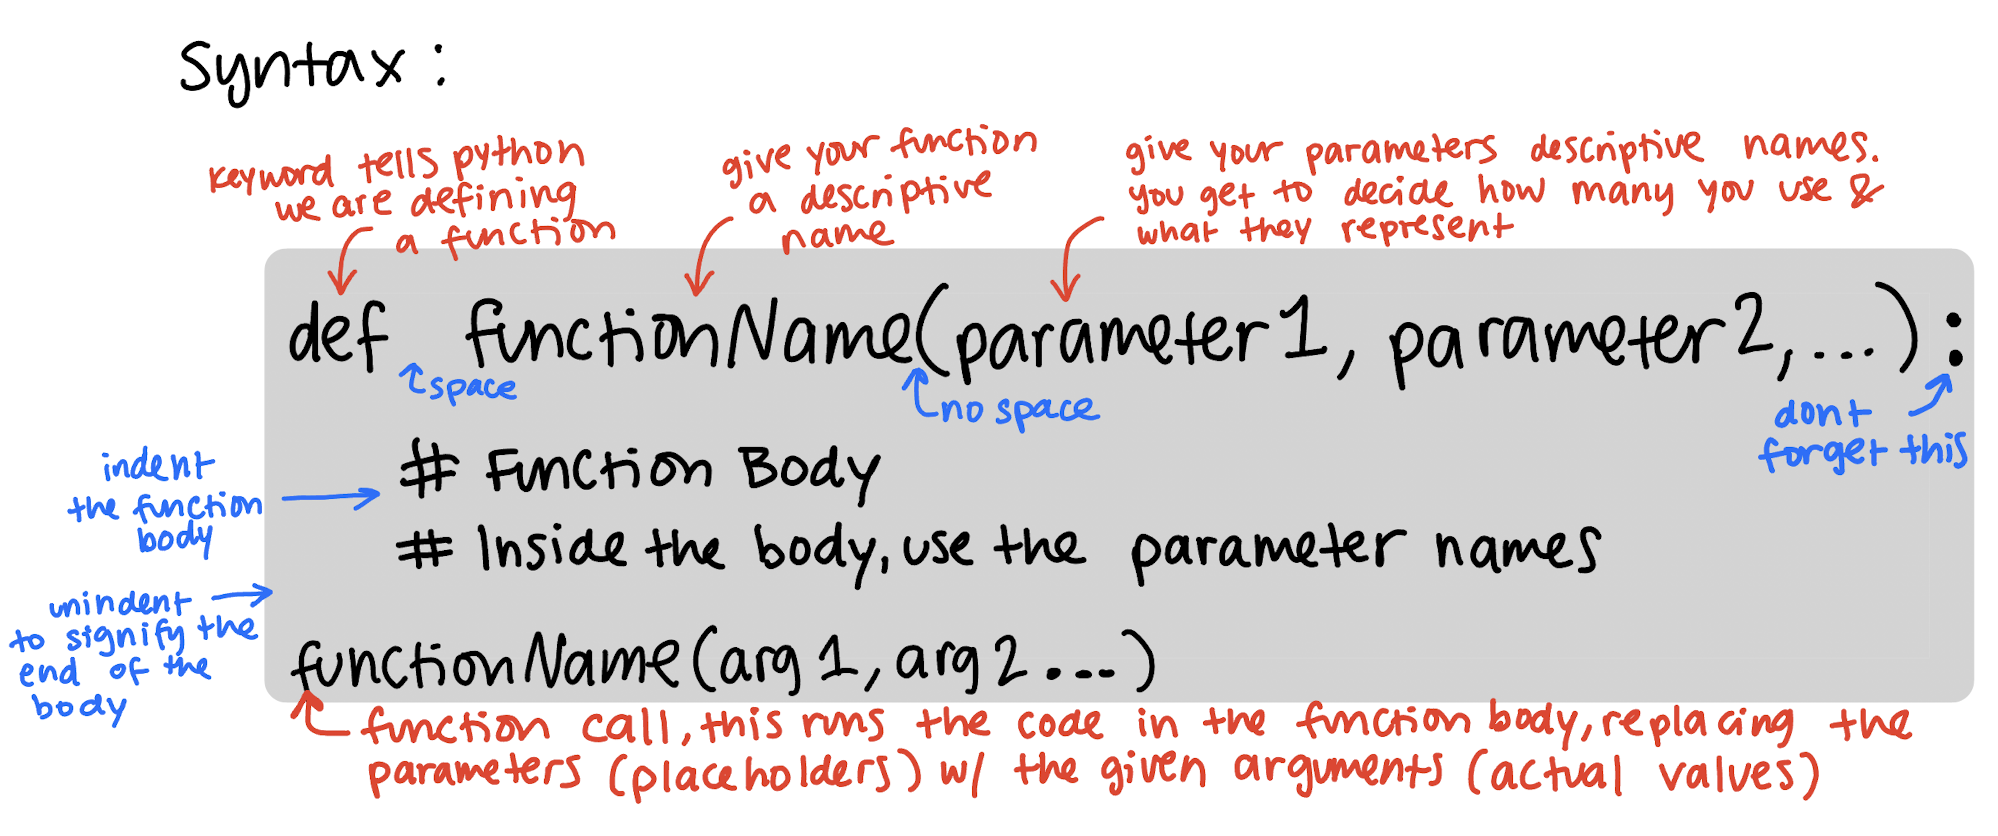 Syntax:
keyword tells python
we are defining
a function
give your function
a descriptive
name
give your parameters descriptive names.
you get to decide how many you use &
what they represent
def functionName(parameter1, parameter2,...):
space
no space
dont
forget this
indent
the function
body
# Function Body
# Inside the body, use the parameter names
unindent
to signify the
end of the
body
functionName(arg1, arg2...)
function call, this runs the code in the function body, replacing the
parameters (placeholders) w/ the given arguments (actual values)